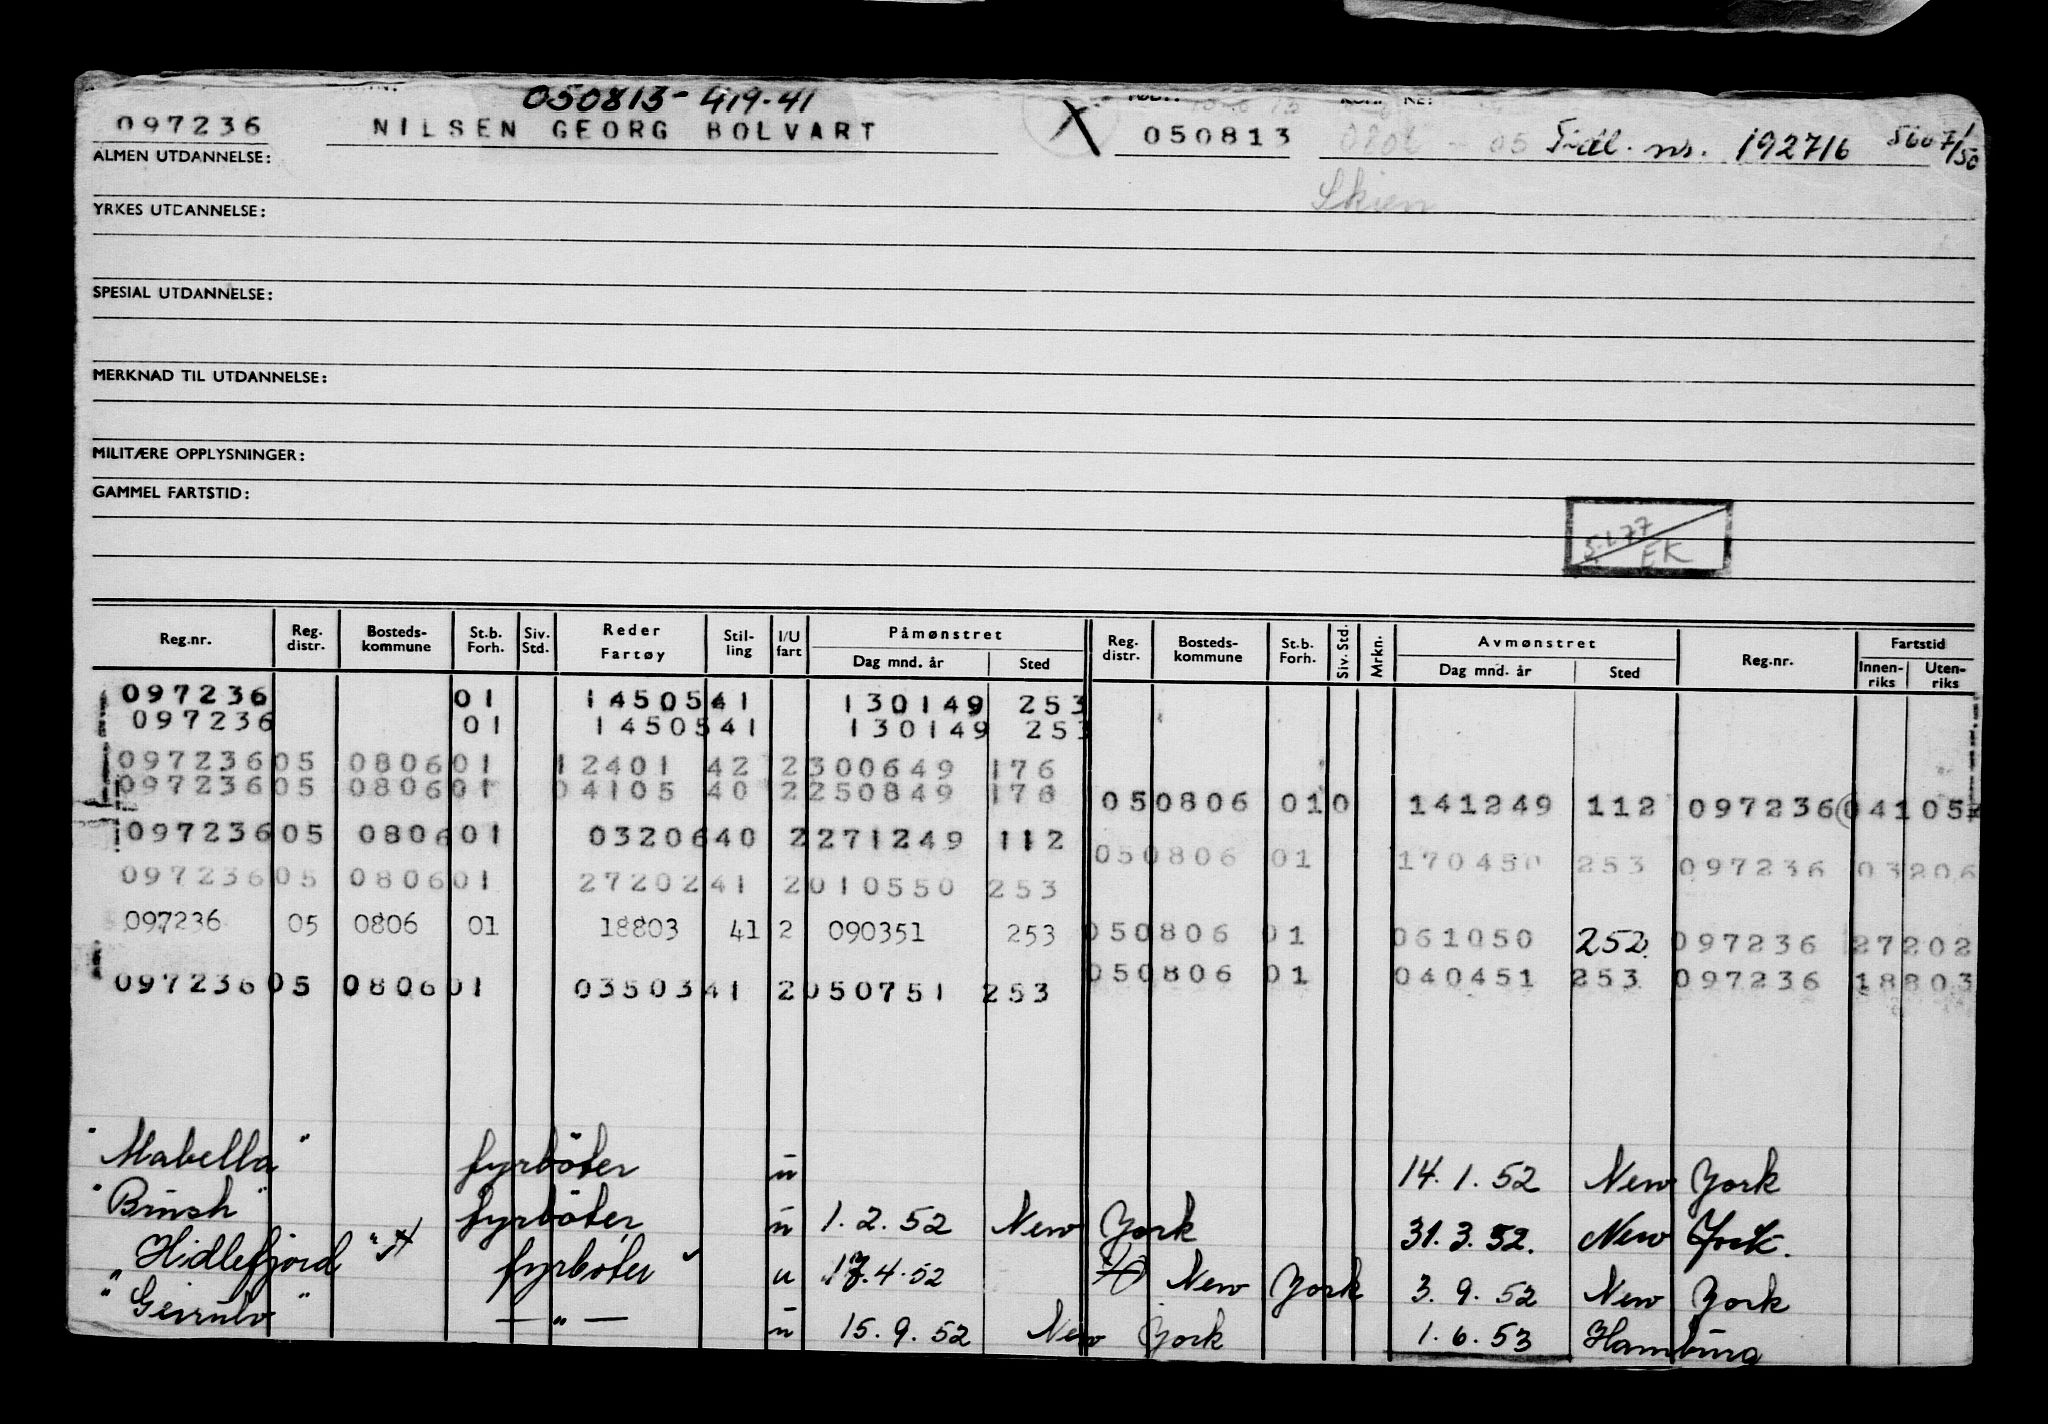 050813-419-41
097236 NILSEN GEORG BOLVART X 050813 0806 - 05 Tidl. nr. 192716 5607/50
Skien
ALMEN UTDANNELSE:
YRKES UTDANNELSE:
SPESIAL UTDANNELSE:
MERKNAD TIL UTDANNELSE:
MILITÆRE OPPLYSNINGER:
GAMMEL FARTSTID:
5.1.77
EK
Reg.nr. Reg. distr. Bosteds-kommune St.b. Forh. Siv. Std. Reder Fartøy Stil-ling I/U fart Påmønstret Dag mnd. år Sted Reg. distr. Bosteds-kommune St.b. Forh. Siv. Std. Mrkn. Avmønstret Dag mnd. år Sted Reg.nr. Fartstid Innen-riks Uten-riks
097236 01 14505 41 130149 253
097236 01 14505 41 130149 253
097236 05 0806 01 12401 42 2 300649 176
097236 05 0806 01 04105 40 2 250849 176 05 0806 01 0 141249 112 097236 04105
097236 05 0806 01 03206 40 2 271249 112 05 0806 01 170450 253 097236 03206
097236 05 0806 01 27202 41 2 010550 253
097236 05 0806 01 18803 41 2 090351 253 05 0806 01 061050 252. 097236 27202
097236 05 0806 01 03503 41 2 050751 253 05 0806 01 040451 253 097236 18803
"Mabella" fyrböter u 14. 1. 52 New York
"Brush" fyrböter u 1. 2. 52 New York 31. 3. 52. New York.
Hidlefjord" fyrböter u 17.4.52 New York 3. 9. 52 New York
"Geirulv" — " — u 15. 9. 52 New York 1. 6. 53 Hamburg